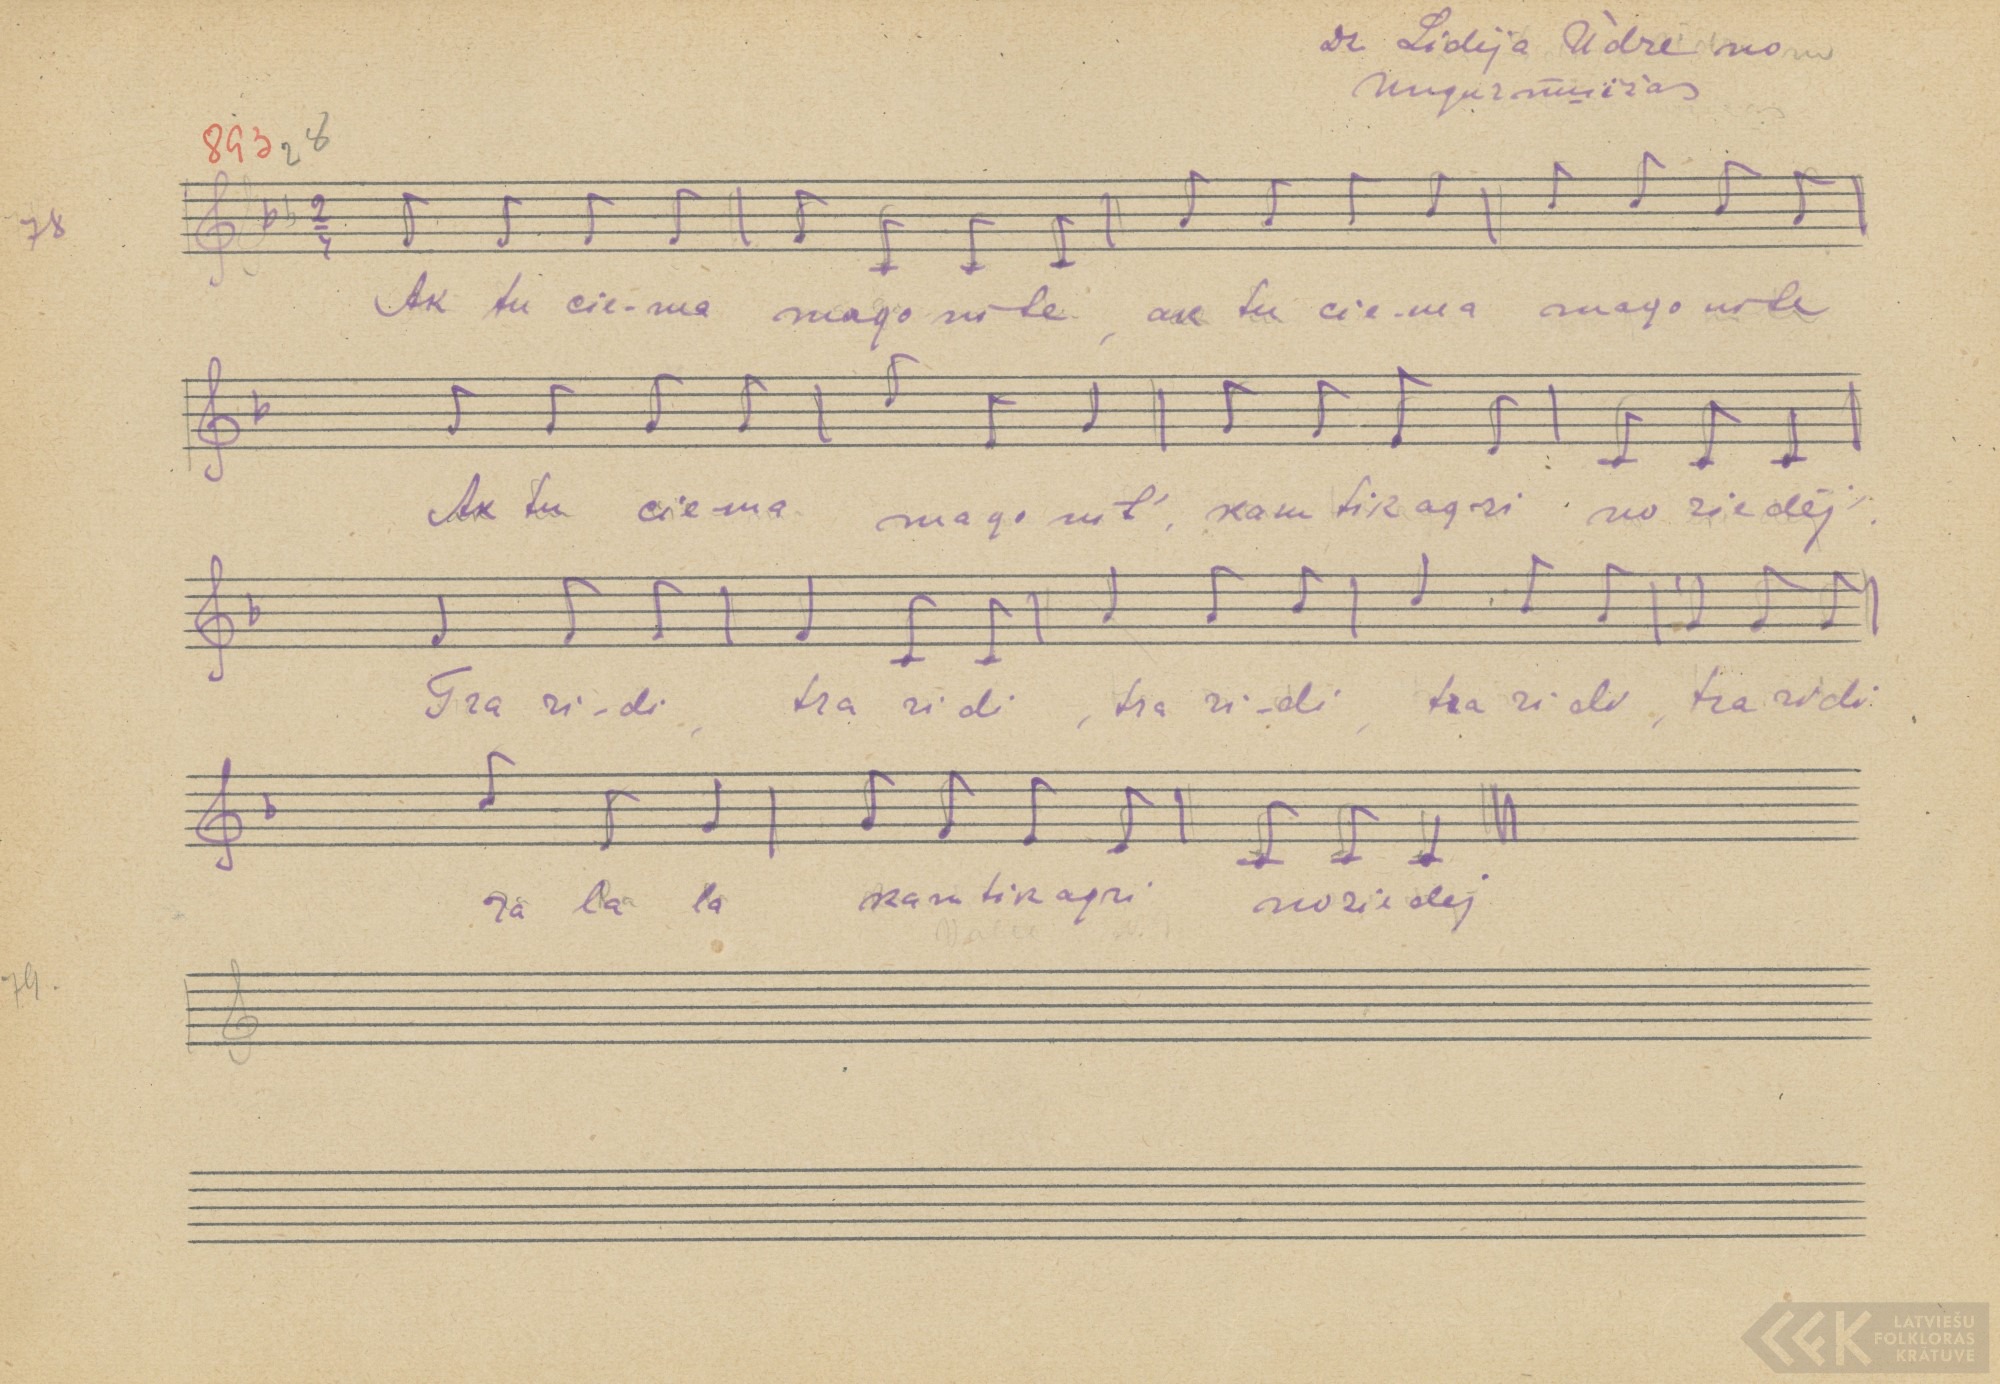 Lidija Ūdre no
Ungurmuižas
893 28
78
2/4
Ak tu cie-ma magonīte, ak tu cie-ma magonīte
Ak tu cie-ma magonīt', kam tik agri noziedēj'.
Tra ri-di, tra ridi, tra ri-di, tra ridi, tra ridi
ra la la kam tik agri noziedēj
79.
LATVIEŠU
FOLKLORAS
KRĀTUVE